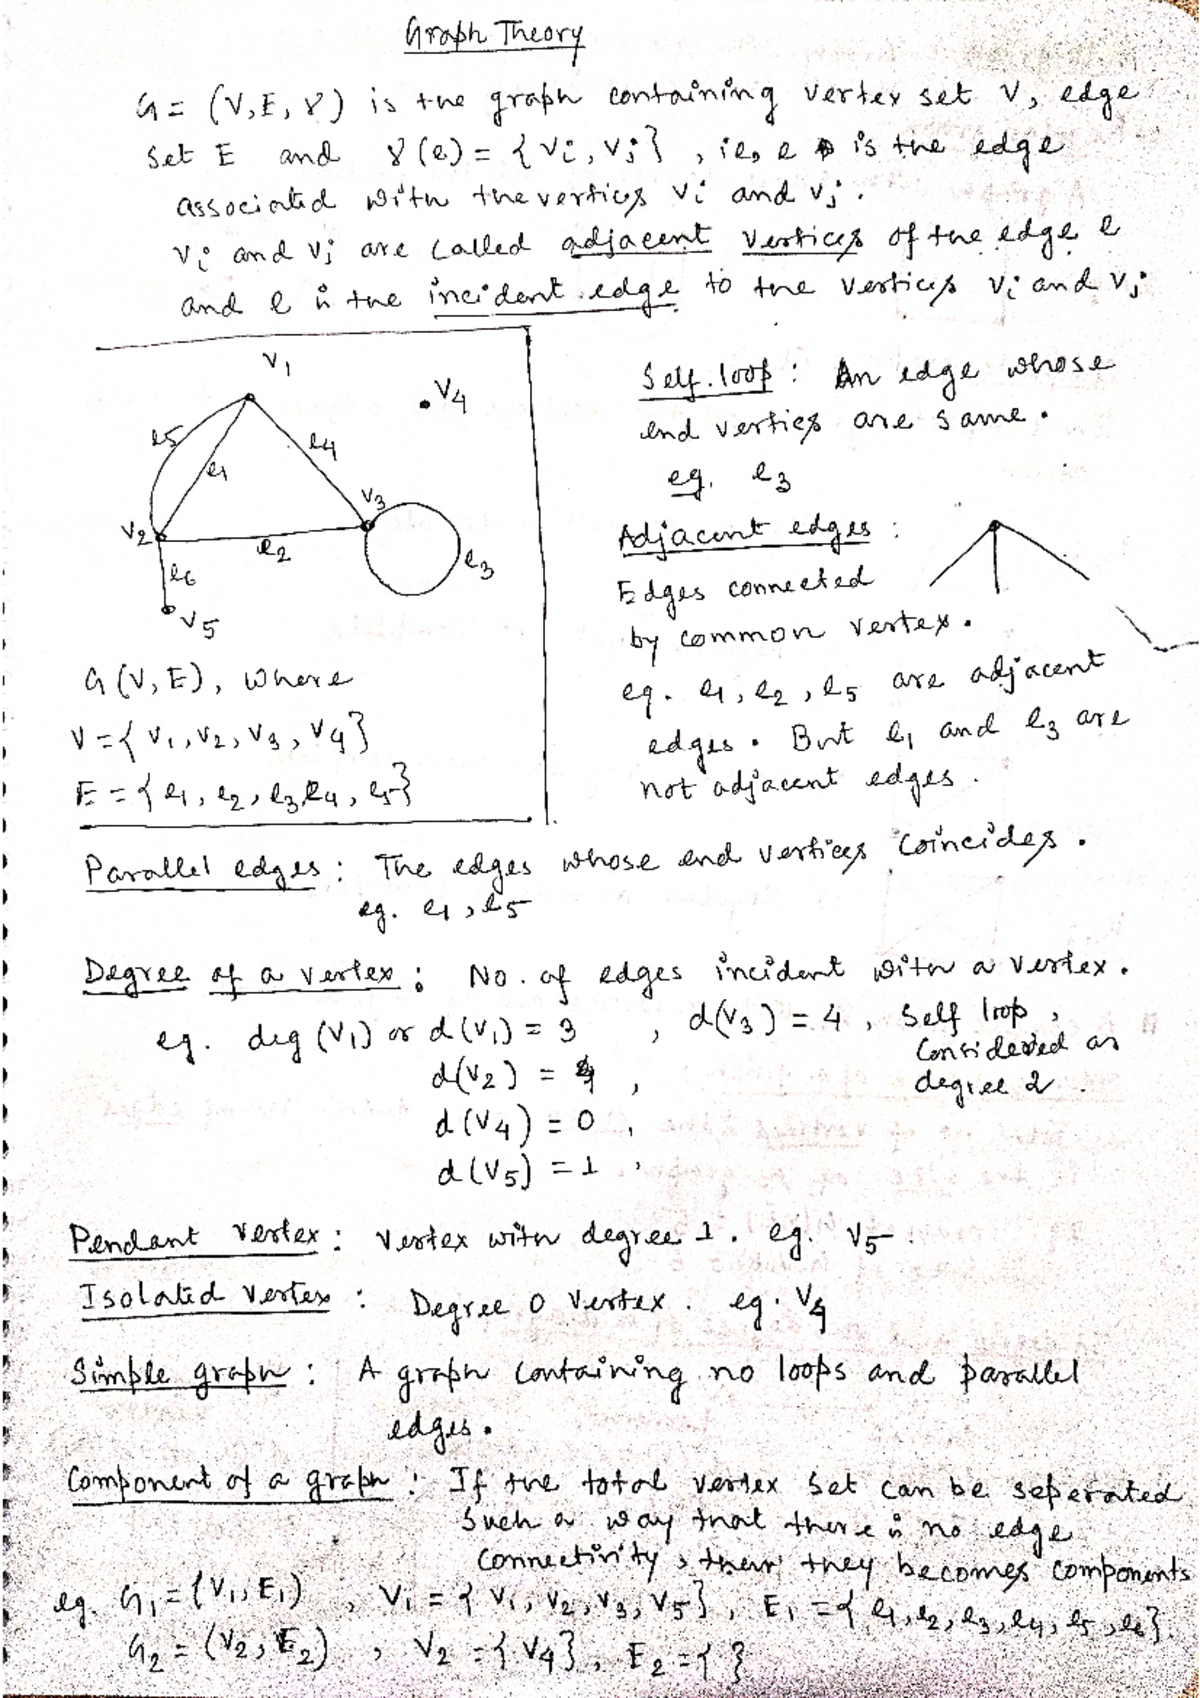 Graph Theory
G = (V, E, γ) is the graph containing vertex set V, edge
set E and γ(e) = {vi, vj}, ie, e is the edge
associated with the vertices vi and vj.
vi and vj are called adjacent vertices of the edge e
and e is the incident edge to the vertices vi and vj
v1
v4
e5
e4
e1
v3
v2
e2
e3
e6
v5
G(V, E), where
V = {v1, v2, v3, v4}
E = {e1, e2, e3, e4, e5}
Self-loop : An edge whose
end vertices are same.
eg. e3
Adjacent edges :
Edges connected
by common vertex.
eg. e1, e2, e5 are adjacent
edges. But e1 and e3 are
not adjacent edges.
Parallel edges : The edges whose end vertices coincides.
eg. e1, e5
Degree of a vertex : No. of edges incident with a vertex.
eg. deg (v1) or d(v1) = 3 , d(v3) = 4, Self loop,
considered as
d(v2) = 4 , degree 2.
d(v4) = 0 ,
d(v5) = 1 ,
Pendant vertex : Vertex with degree 1. eg. v5.
Isolated vertex : Degree 0 vertex. eg. v4
Simple graph : A graph containing no loops and parallel
edges.
Component of a graph : If the total vertex set can be seperated
such a way that there is no edge
connectivity, then they becomes components
eg. G1 = (V1, E1) , V1 = {v1, v2, v3, v5}, E1 = {e1, e2, e3, e4, e5, e6}.
G2 = (V2, E2) , V2 = {v4}, E2 = { }